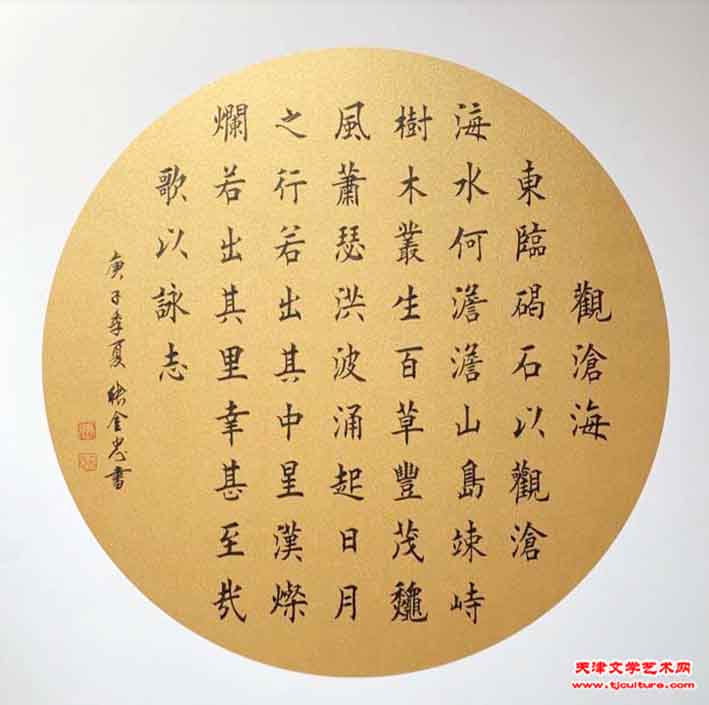 觀滄海
東臨碣石以觀滄
海水何澹澹山島竦峙
樹木叢生百草豐茂龝
風蕭瑟洪波涌起日月
之行若出其中星漢燦
爛若出其里幸甚至哉
歌以詠志
庚子季夏金忠書
天津文学艺术网
www.tjculture.com